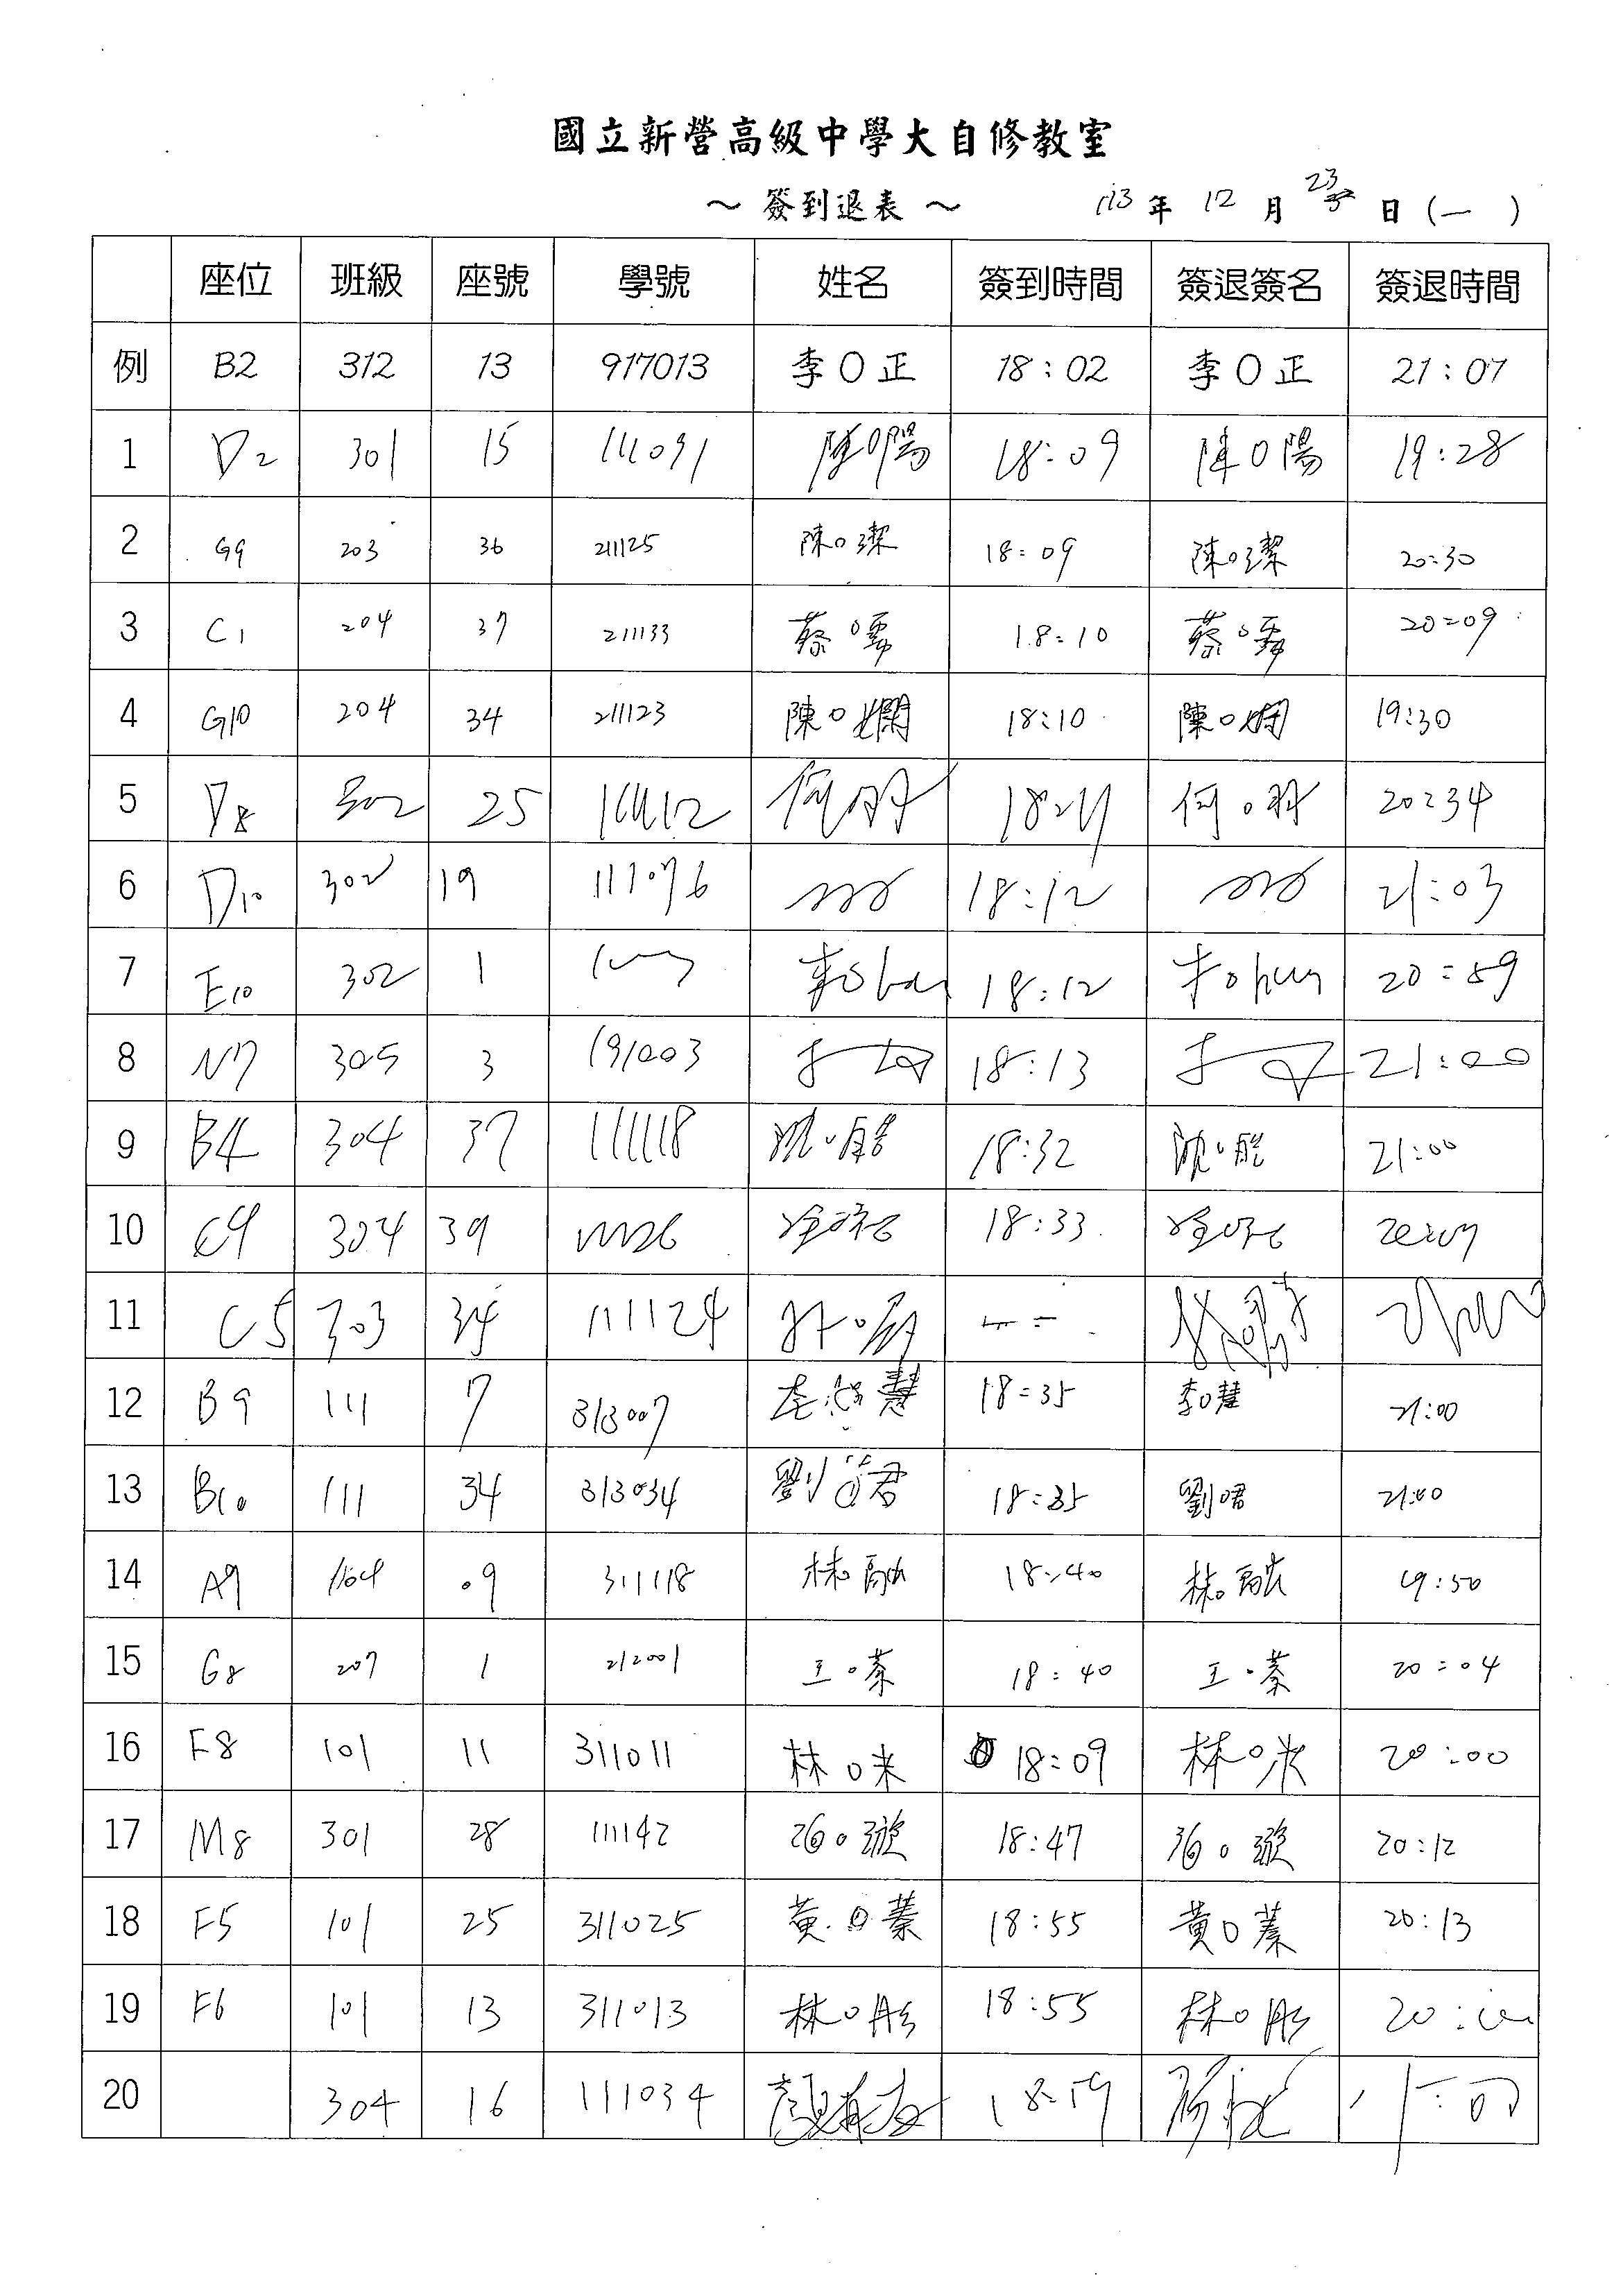 國立新營高級中學大自修教室
～ 簽到退表 ～ 113 年 12 月 23 日 (一 )
座位 班級 座號 學號 姓名 簽到時間 簽退簽名 簽退時間
例 B2 312 13 917013 李O正 18:02 李O正 21:07
1 D2 301 15 111091 陳O陽 18:09 陳O陽 19:28
2 G9 203 36 211125 陳O潔 18:09 陳O潔 20:30
3 C1 204 37 211133 蔡O 18:10 蔡O 20:09
4 G10 204 34 211123 陳O嫻 18:10 陳O嫻 19:30
5 D8 302 25 111112 何O 18:11 何O 20:34
6 D10 302 19 111076 18:12 21:03
7 E10 302 1 李O 18:12 20:59
8 N7 305 3 191003 18:13 21:00
9 B4 304 37 111118 18:32 21:00
10 C9 304 39 18:33
11 C5 303 34 111124
12 B9 111 7 313007 李 慧 18:35 李O慧 21:00
13 B10 111 34 313034 劉 君 18:35 劉O君 21:00
14 A9 104 09 311118 林O融 18:40 林O融 19:50
15 G8 207 1 212001 王O蓁 18:40 王O蓁 20:04
16 F8 101 11 311011 林O 18:09 林O 20:00
17 M8 301 28 111142 O璇 18:47 O璇 20:12
18 F5 101 25 311025 黃O蓁 18:55 黃O蓁 20:13
19 F6 101 13 311013 林O彤 18:55 林O彤
20 304 16 111034 顏 18:59